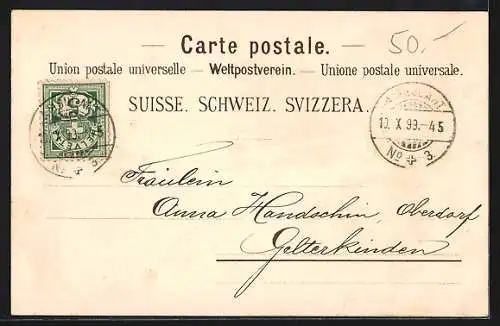 50.-
— Carte postale. —
Union postale universelle — Weltpostverein. — Unione postale universale.
SUISSE. SCHWEIZ. SVIZZERA.
10. X 99.-45
No 3.
No 3.
Fräulein
Anna Handschin, Oberdorf
Gelterkinden